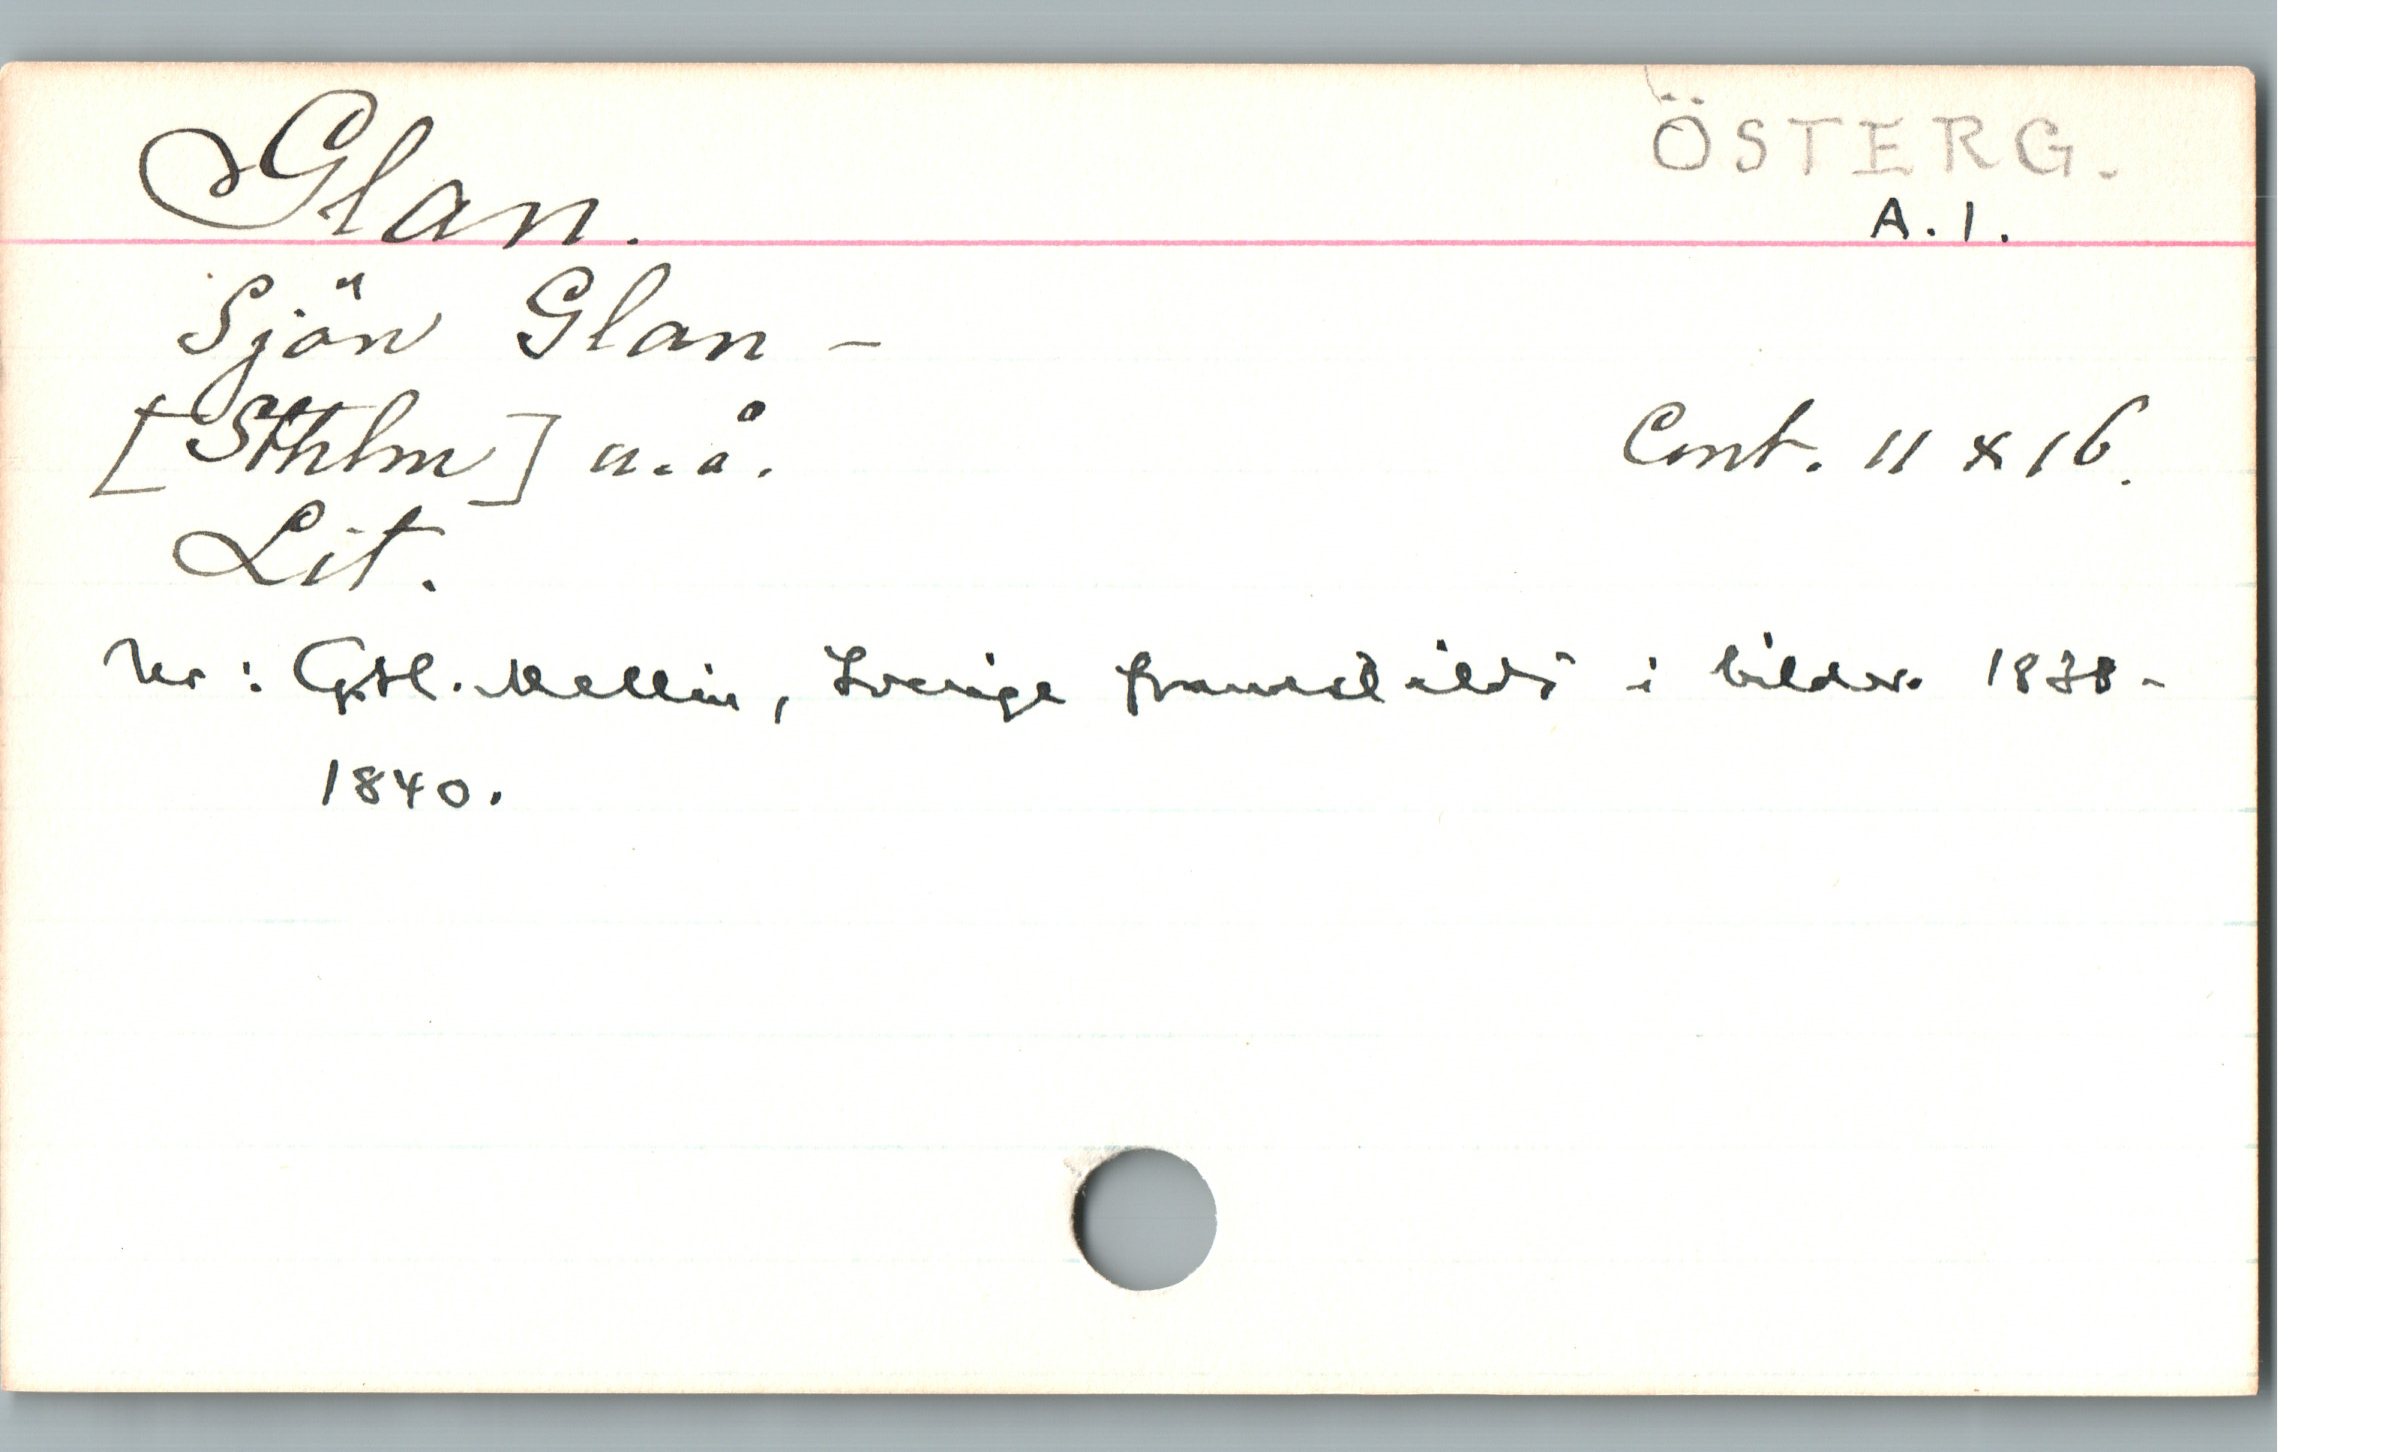 Glan.
ÖSTERG.
A. 1.
Sjön Glan –
[Sthlm] u. å.
Cont. 11 x 16.
Lit.
Ur: G. Mellin, Sverige framstäldt i bilder. 1838-
1840.